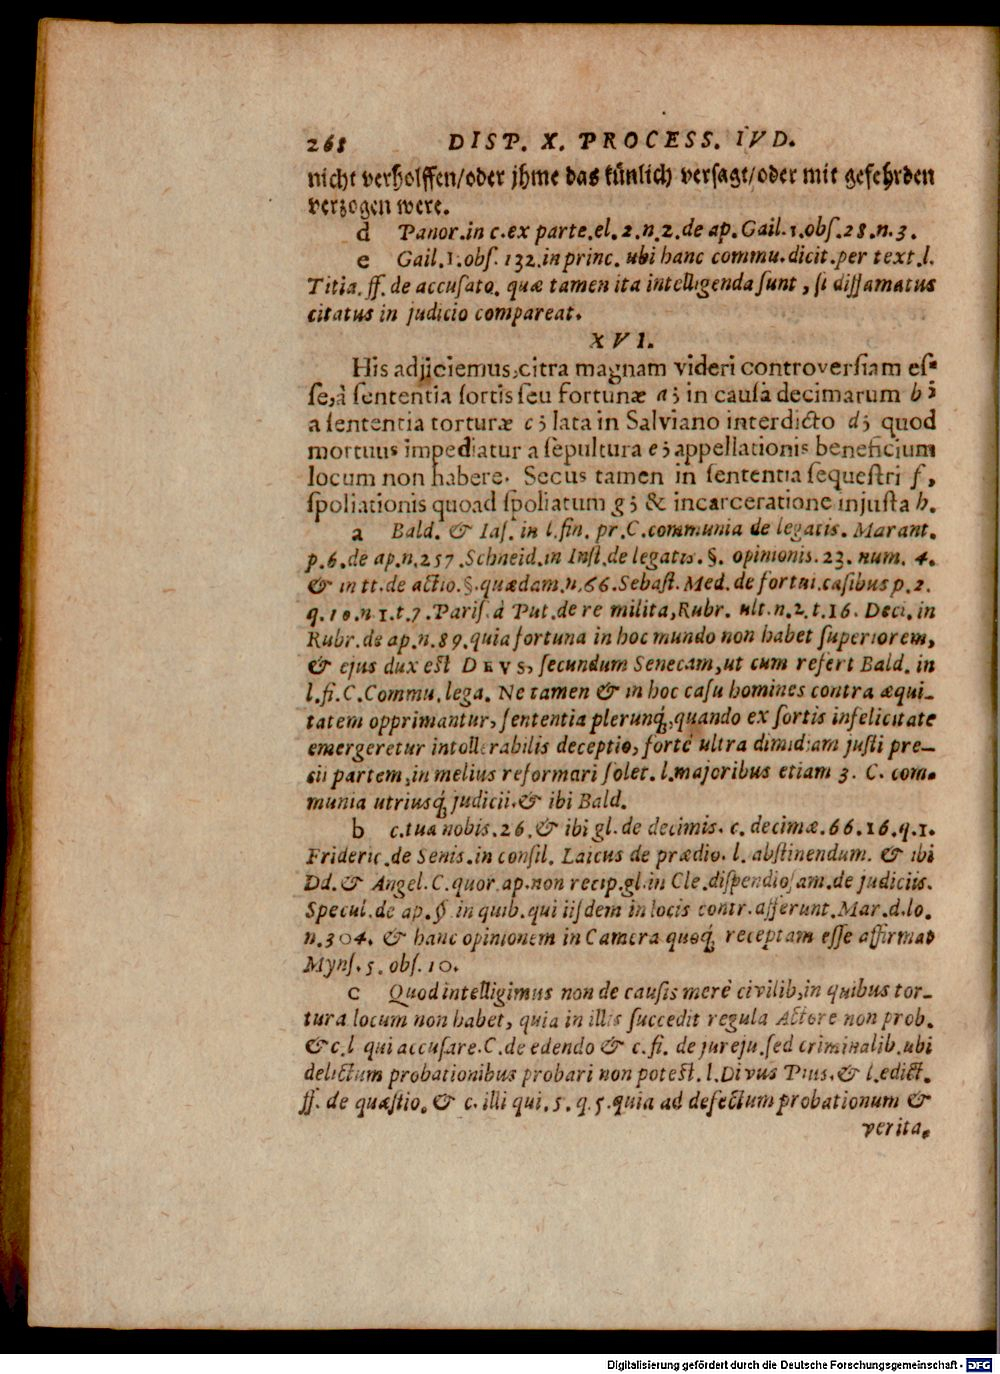 268 DISP. X. PROCESS. IVD.
nicht verholffen/oder jhme das künlich versagt/oder mit gefehrden
verzogen were.
d Panor.in c.ex parte.el.2.n.2.de ap.Gail.1.obs.28.n.3.
e Gail.1.obs.132.in princ. ubi hanc commu.dicit.per text.l.
Titia.ff.de accusato. quæ tamen ita intelligenda sunt, si diffamatus
citatus in judicio compareat.
XVI.
His adjiciemus,citra magnam videri controversiam es-
se,à sententia sortis seu fortunæ a; in causà decimarum b;
a sententia torturæ c; lata in Salviano interdicto d; quod
mortuus impediatur a sèpultura e; appellationis beneficium
locum non habere. Secus tamen in sententia sequestri f,
spoliationis quoad spoliatum g; & incarceratione injusta h.
a Bald. & Ias. in l.fin. pr.C.communia de legatis. Marant.
p.6.de ap.n.257.Schneid.in Inst.de legatis.§. opinionis.23. num. 4.
& in tt.de actio.§.quædam.n.66.Sebast.Med.de fortui.casibus p.2.
q.10.n.1.t.7.Paris.à Put.de re milita,Rubr. ult.n.2.t.16. Deci.in
Rubr.de ap.n.89.quia fortuna in hoc mundo non habet superiorem,
& ejus dux est DEVS, secundum Senecam,ut cum refert Bald.in
l.fi.C.Commu.lega. Ne tamen & in hoc casu homines contra æqui-
tatem opprimantur, sententia plerunq́;,quando ex sortis infelicitate
emergeretur intollerabilis deceptio, fortè ultra dimidiam justi pre-
tii partem,in melius reformari solet. l.majoribus etiam 3. C. com-
munia utriusq́; judicii.& ibi Bald.
b c.tua nobis.26.& ibi gl.de decimis. c. decimæ.66.16.q.1.
Frideric.de Senis.in consil. Laicus de prædio. l. abstinendum. & ibi
Dd.& Angel.C.quor.ap.non recip.gl.in Cle.dispendiosam.de judiciis.
Specul.de ap.§ in quib.qui iisdem in locis contr.afferunt.Mar.d.lo.
n.304. & hanc opinionem in Camera quoq́; receptam esse affirmat
Myns.5. obs.10.
c Quod intelligimus non de causis merè civilib,in quibus tor-
tura locum non habet, quia in illis succedit regula Actore non prob.
& c.l qui accusare.C.de edendo & c.fi. de jureju.sed criminalib.ubi
delictum probationibus probari non potest.l.Divus Pius.& l.edict.
ff. de quæstio. & c.illi qui.5.q.5.quia ad defectum probationum &
verita.
Digitalisierung gefördert durch die Deutsche Forschungsgemeinschaft - DFG